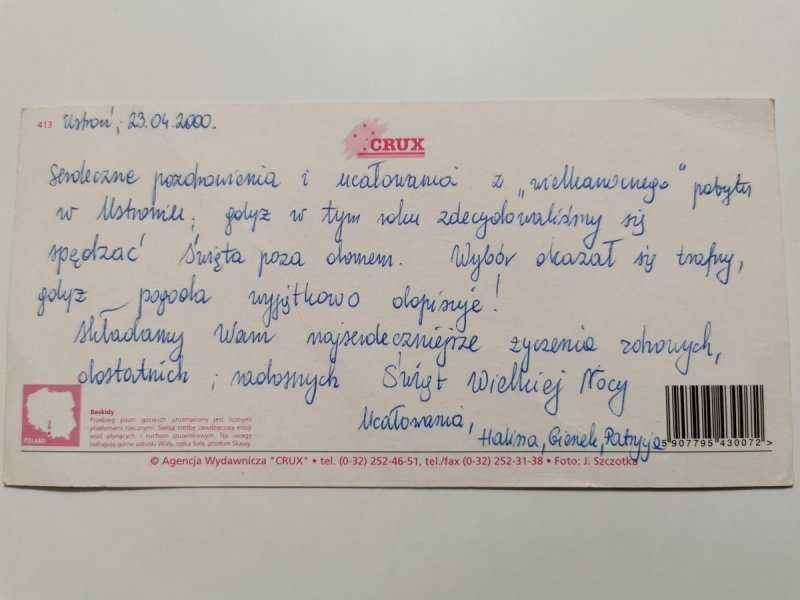 413 Ustroń, 23.04.2000.
CRUX
Serdeczne pozdrowienia i ucałowania z „wielkanocnego" pobytu
w Ustroniu, gdyż w tym roku zdecydowaliśmy się
spędzać Święta poza domem. Wybór okazał się trafny,
gdyż pogoda wyjątkowo dopisuje!
Składamy Wam najserdeczniejsze życzenia zdrowych,
dostatnich i radosnych Świąt Wielkiej Nocy
Ucałowania,
Halina, Gienek, Patrycja
POLAND
Beskidy
Przebieg pasm górskich urozmaicony jest licznymi
przełomami rzecznymi. Swoją rzeźbę zawdzięczają erozji
wód płynących i ruchom osuwiskowym. Na uwagę
zasługują górne odcinki Wisły, rzeka Soła, przełom Skawy.
5 907795 430072 >
© Agencja Wydawnicza "CRUX" • tel. (0-32) 252-46-51, tel./fax (0-32) 252-31-38 • Foto: J. Szczotka